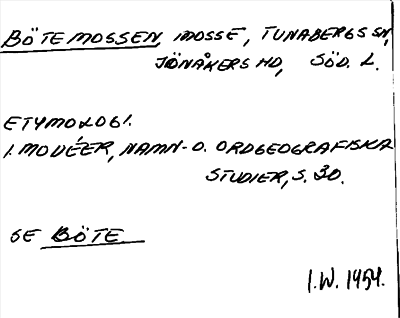 BÖTEMOSSEN, MOSSE, TUNABERGS SN,
JÖNÅKERS HD, SÖD. L.
ETYMOLOGI.
I. MODÉER, NAMN- O. ORDGEOGRAFISKA
STUDIER, S. 30.
SE BÖTE
I.W. 1954.